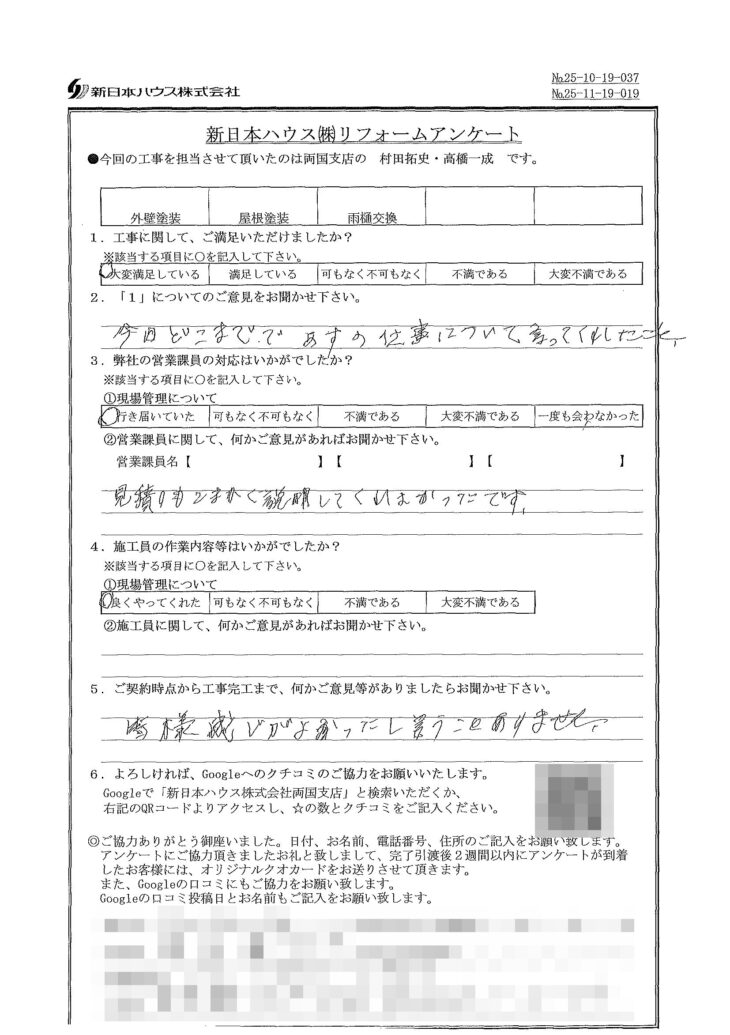 新日本ハウス株式会社
№25-10-19-037
№25-11-19-019
新日本ハウス㈱リフォームアンケート
●今回の工事を担当させて頂いたのは両国支店の 村田拓史・高橋一成 です。
外壁塗装 屋根塗装 雨樋交換
1．工事に関して、ご満足いただけましたか？
※該当する項目に○を記入して下さい。
大変満足している 満足している 可もなく不可もなく 不満である 大変不満である
2．「1」についてのご意見をお聞かせ下さい。
今日どこまでで あすの仕事について言ってくれたこと、
3．弊社の営業課員の対応はいかがでしたか？
※該当する項目に○を記入して下さい。
①現場管理について
行き届いていた 可もなく不可もなく 不満である 大変不満である 一度も会わなかった
②営業課員に関して、何かご意見があればお聞かせ下さい。
営業課員名【 】【 】【 】
見積りもこまかく説明してくれよかったです、
4．施工員の作業内容等はいかがでしたか？
※該当する項目に○を記入して下さい。
①現場管理について
良くやってくれた 可もなく不可もなく 不満である 大変不満である
②施工員に関して、何かご意見があればお聞かせ下さい。
5．ご契約時点から工事完工まで、何かご意見等がありましたらお聞かせ下さい。
皆様感じがよかったし言うことありません、
6．よろしければ、Googleへのクチコミのご協力をお願いいたします。
Googleで「新日本ハウス株式会社両国支店」と検索いただくか、
右記のQRコードよりアクセスし、☆の数とクチコミをご記入ください。
◎ご協力ありがとう御座いました。日付、お名前、電話番号、住所のご記入をお願い致します。
アンケートにご協力頂きましたお礼と致しまして、完了引渡後２週間以内にアンケートが到着
したお客様には、オリジナルクオカードをお送りさせて頂きます。
また、Googleの口コミにもご協力をお願い致します。
Googleの口コミ投稿日とお名前もご記入をお願い致します。